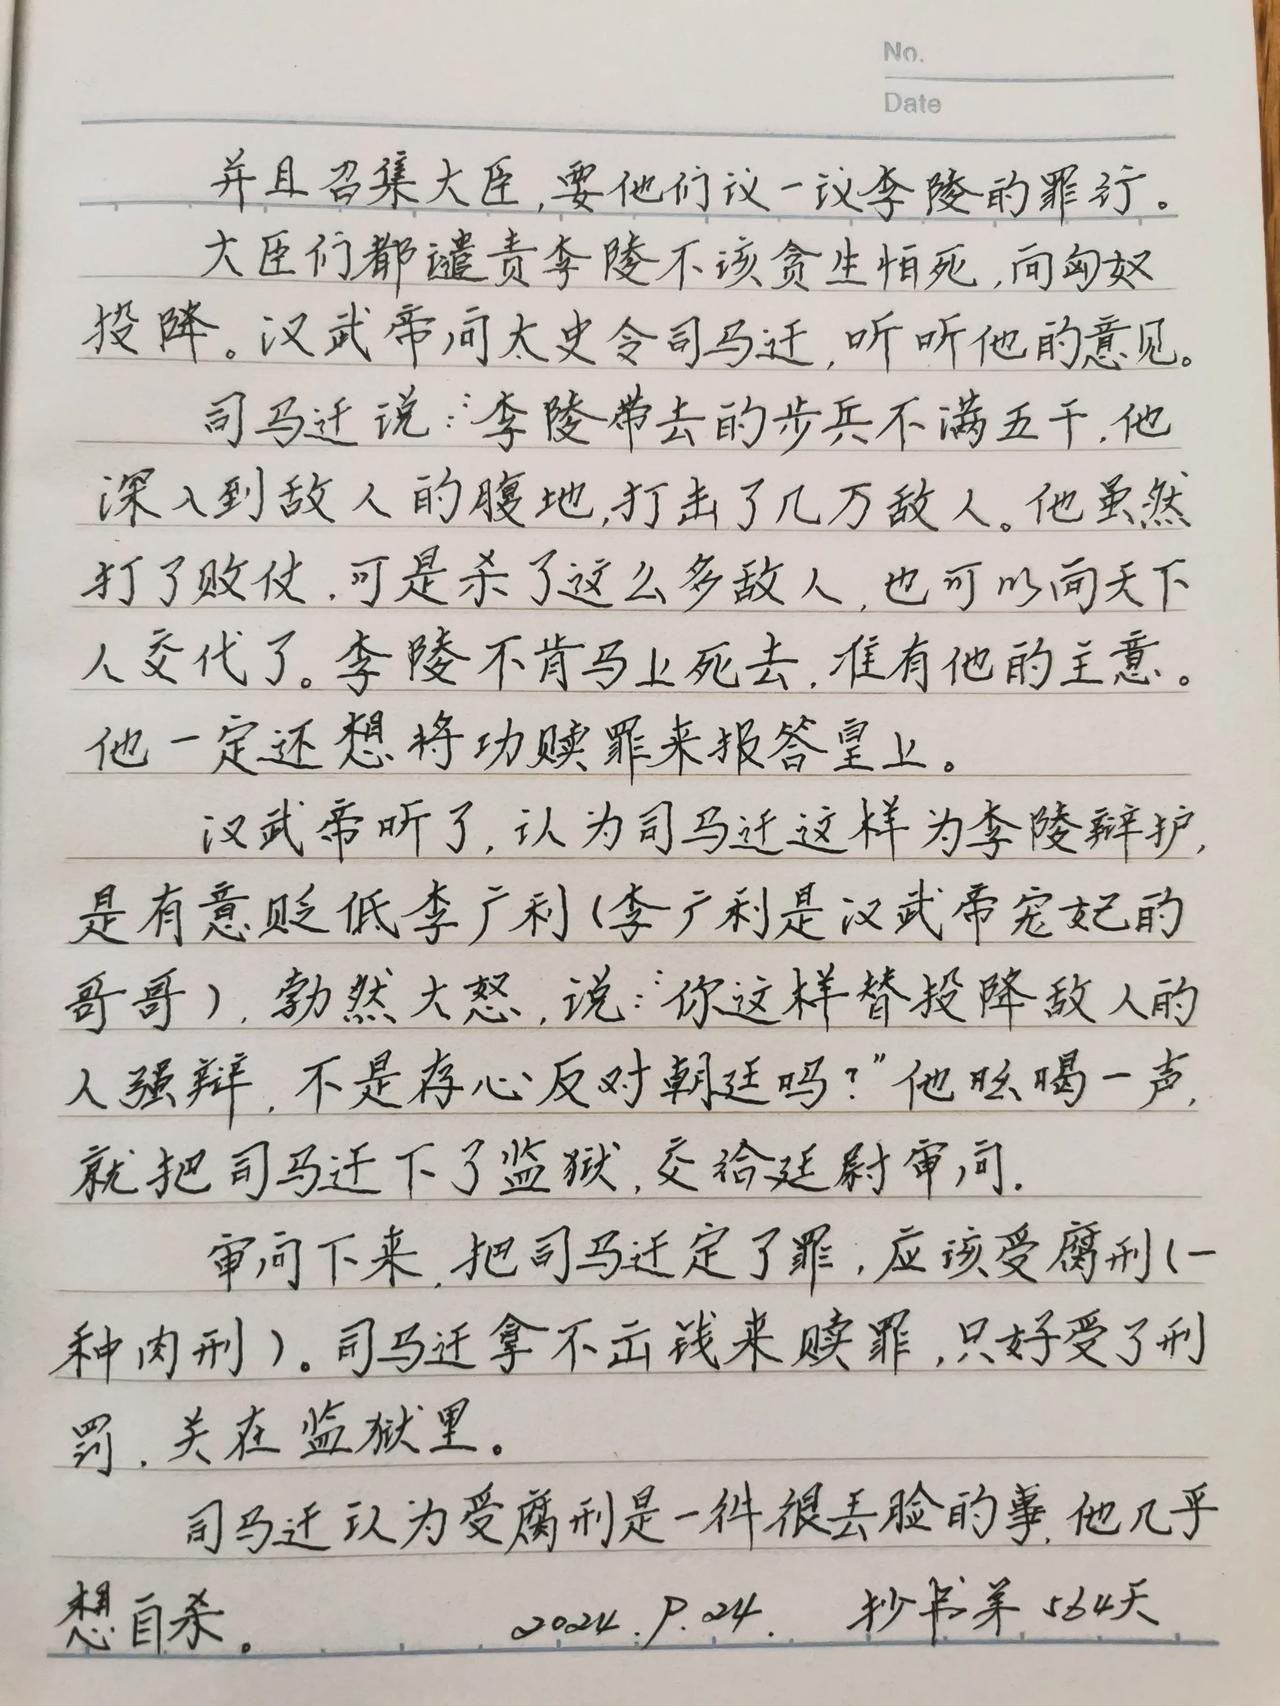 No.
Date
并且召集大臣,要他们议一议李陵的罪行。
大臣们都谴责李陵不该贪生怕死,向匈奴
投降。汉武帝问太史令司马迁,听听他的意见。
司马迁说:“李陵带去的步兵不满五千,他
深入到敌人的腹地,打击了几万敌人。他虽然
打了败仗,可是杀了这么多敌人,也可以向天下
人交代了。李陵不肯马上死去,准有他的主意。
他一定还想将功赎罪来报答皇上。
汉武帝听了,认为司马迁这样为李陵辩护,
是有意贬低李广利(李广利是汉武帝宠妃的
哥哥),勃然大怒,说:“你这样替投降敌人的
人强辩,不是存心反对朝廷吗?”他吆喝一声,
就把司马迁下了监狱,交给廷尉审问.
审问下来,把司马迁定了罪,应该受腐刑(一
种肉刑)。司马迁拿不出钱来赎罪,只好受了刑
罚,关在监狱里。
司马迁认为受腐刑是一件很丢脸的事,他几乎
想自杀。 2024.9.24. 抄书第564天